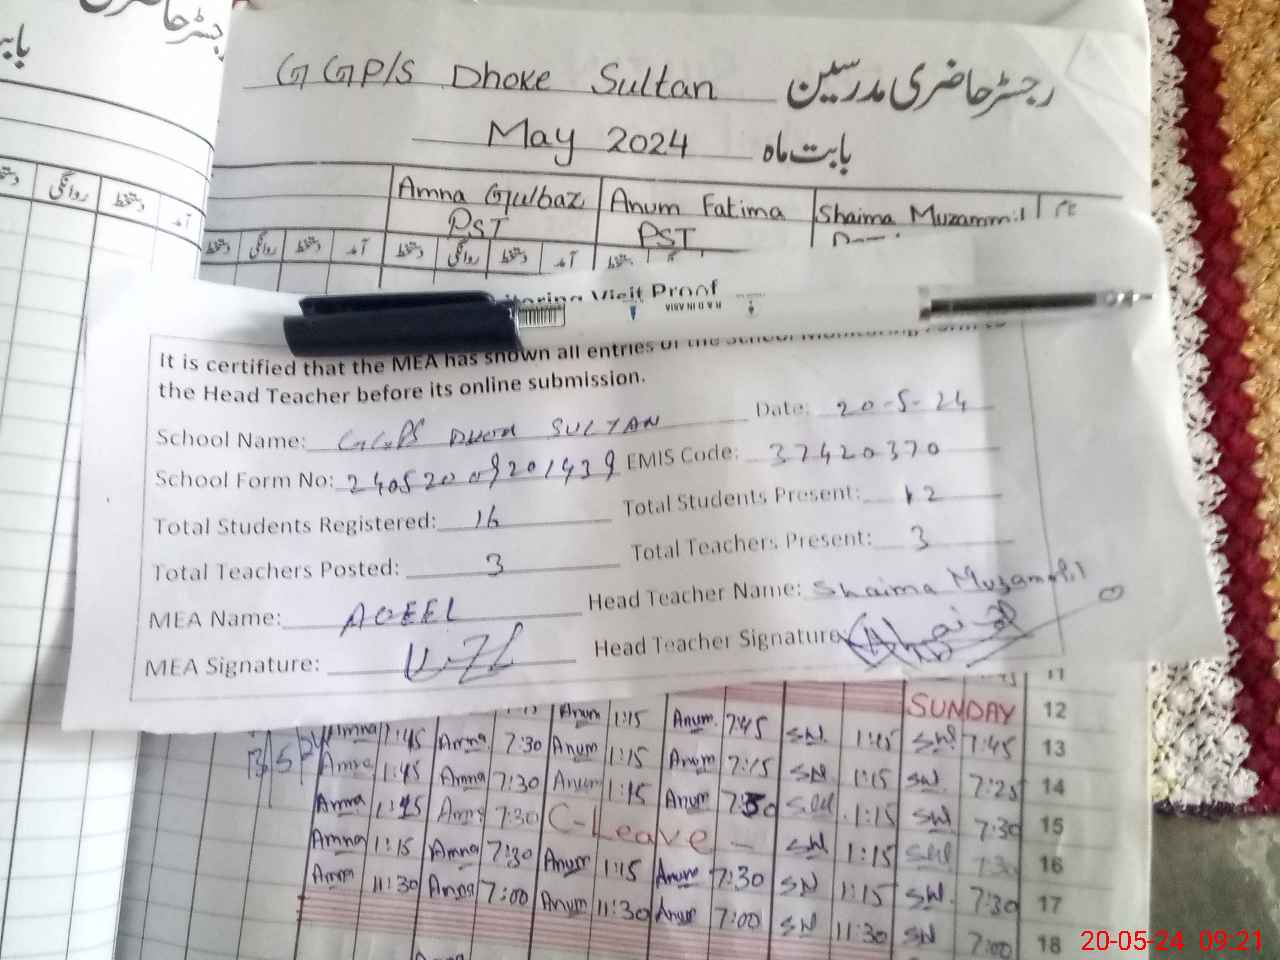 GGP/S Dhoke Sultan رجسٹر حاضری مدرسین
May 2024 بابت ماہ
Amna Gulbaz Anum Fatima Shaima Muzammil
PST PST
دستخط روانگی دستخط آمد دستخط روانگی دستخط آمد
روانگی دستخط آمد
Visit Proof
It is certified that the MEA has shown all entries of the School Monitoring Form to
the Head Teacher before its online submission.
School Name: GGPS DHOK SULTAN Date: 20-5-24
School Form No: 240520 09201439 EMIS Code: 37420370
Total Students Registered: 16 Total Students Present: 12
Total Teachers Posted: 3 Total Teachers Present: 3
MEA Name: AQEEL Head Teacher Name: Shaima Muzammil
MEA Signature: Head Teacher Signature
11
SUNDAY 12
Amna 1:45 Amna 7:30 Anum 1:15 Anum 7:45 SM 1:45 SM 7:45 13
Amna 1:45 Amna 7:30 Anum 1:15 Anum 7:15 SM 1:15 SM 7:25 14
Amna 1:45 Amna 7:30 Anum 1:15 Anum 7:30 SM 1:15 SM 7:30 15
Amna 1:15 Amna 7:30 C-Leave - SM 1:15 SM 7:30 16
Amna 1:15 Amna 7:30 Anum 1:15 Anum 7:30 SM 1:15 SM 7:30 17
Amna 11:30 Amna 7:00 Anum 11:30 Anum 7:00 SM 11:30 SM 7:00 18
20-05-24 09:21